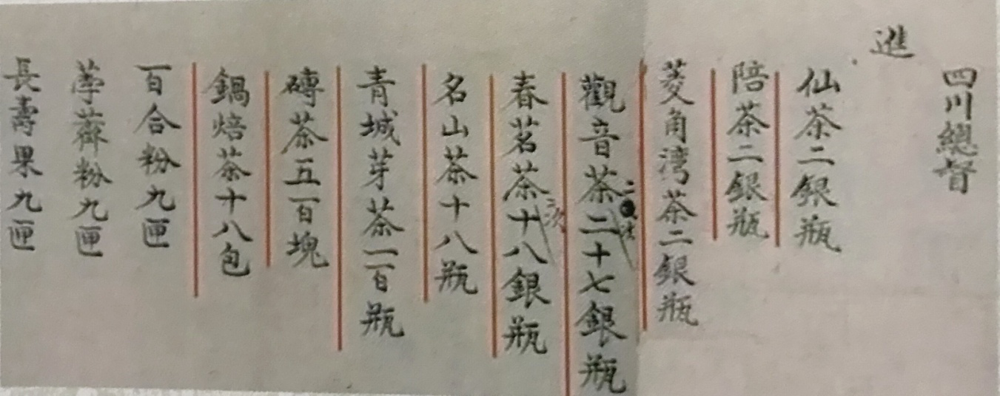 四川總督
進
仙茶二銀瓶
陪茶二銀瓶
菱角湾茶二銀瓶
觀音茶二十七銀瓶
二次
春茗茶十八銀瓶
二次
名山茶十八瓶
青城芽茶一百瓶
磚茶五百塊
鍋焙茶十八包
百合粉九匣
葧薺粉九匣
長壽果九匣